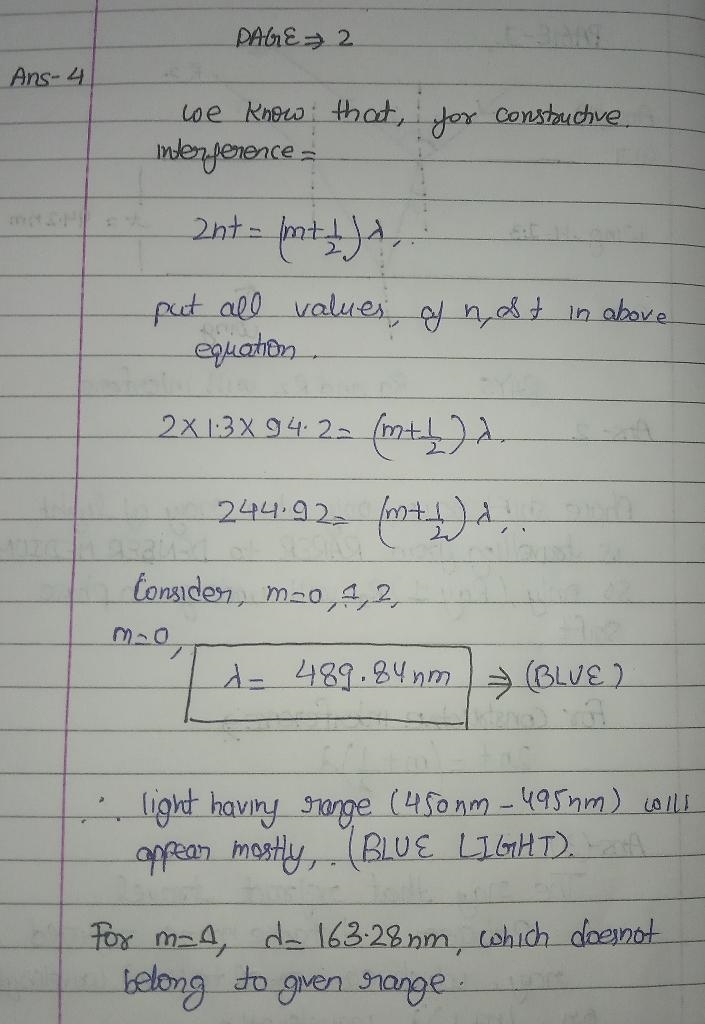 PAGE ⇒ 2
Ans-4
We know that, for constructive
interference =
2nt = (m+1/2)λ,
put all values, of n, & t in above
equation.
2×1.3×94.2 = (m+1/2)λ.
244.92 = (m+1/2)λ,
Consider, m=0,1,2,
m=0,
λ = 489.84nm ⇒ (BLUE)
∴ light having range (450nm-495nm) will
appear mostly, (BLUE LIGHT).
For m=1, λ= 163.28nm, which doesnot
belong to given range.